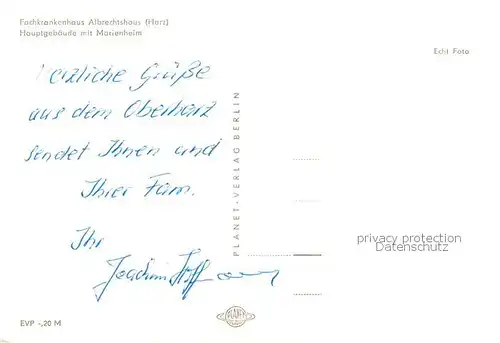 Fachkrankenhaus Albrechtshaus (Harz)
Hauptgebäude mit Marienheim
Echt Foto
Herzliche Grüße
aus dem Oberharz
sendet Ihnen und
Ihrer Fam.
Ihr
Joachim
PLANET-VERLAG BERLIN
privacy protection
Datenschutz
EVP -,20 M
PLANET